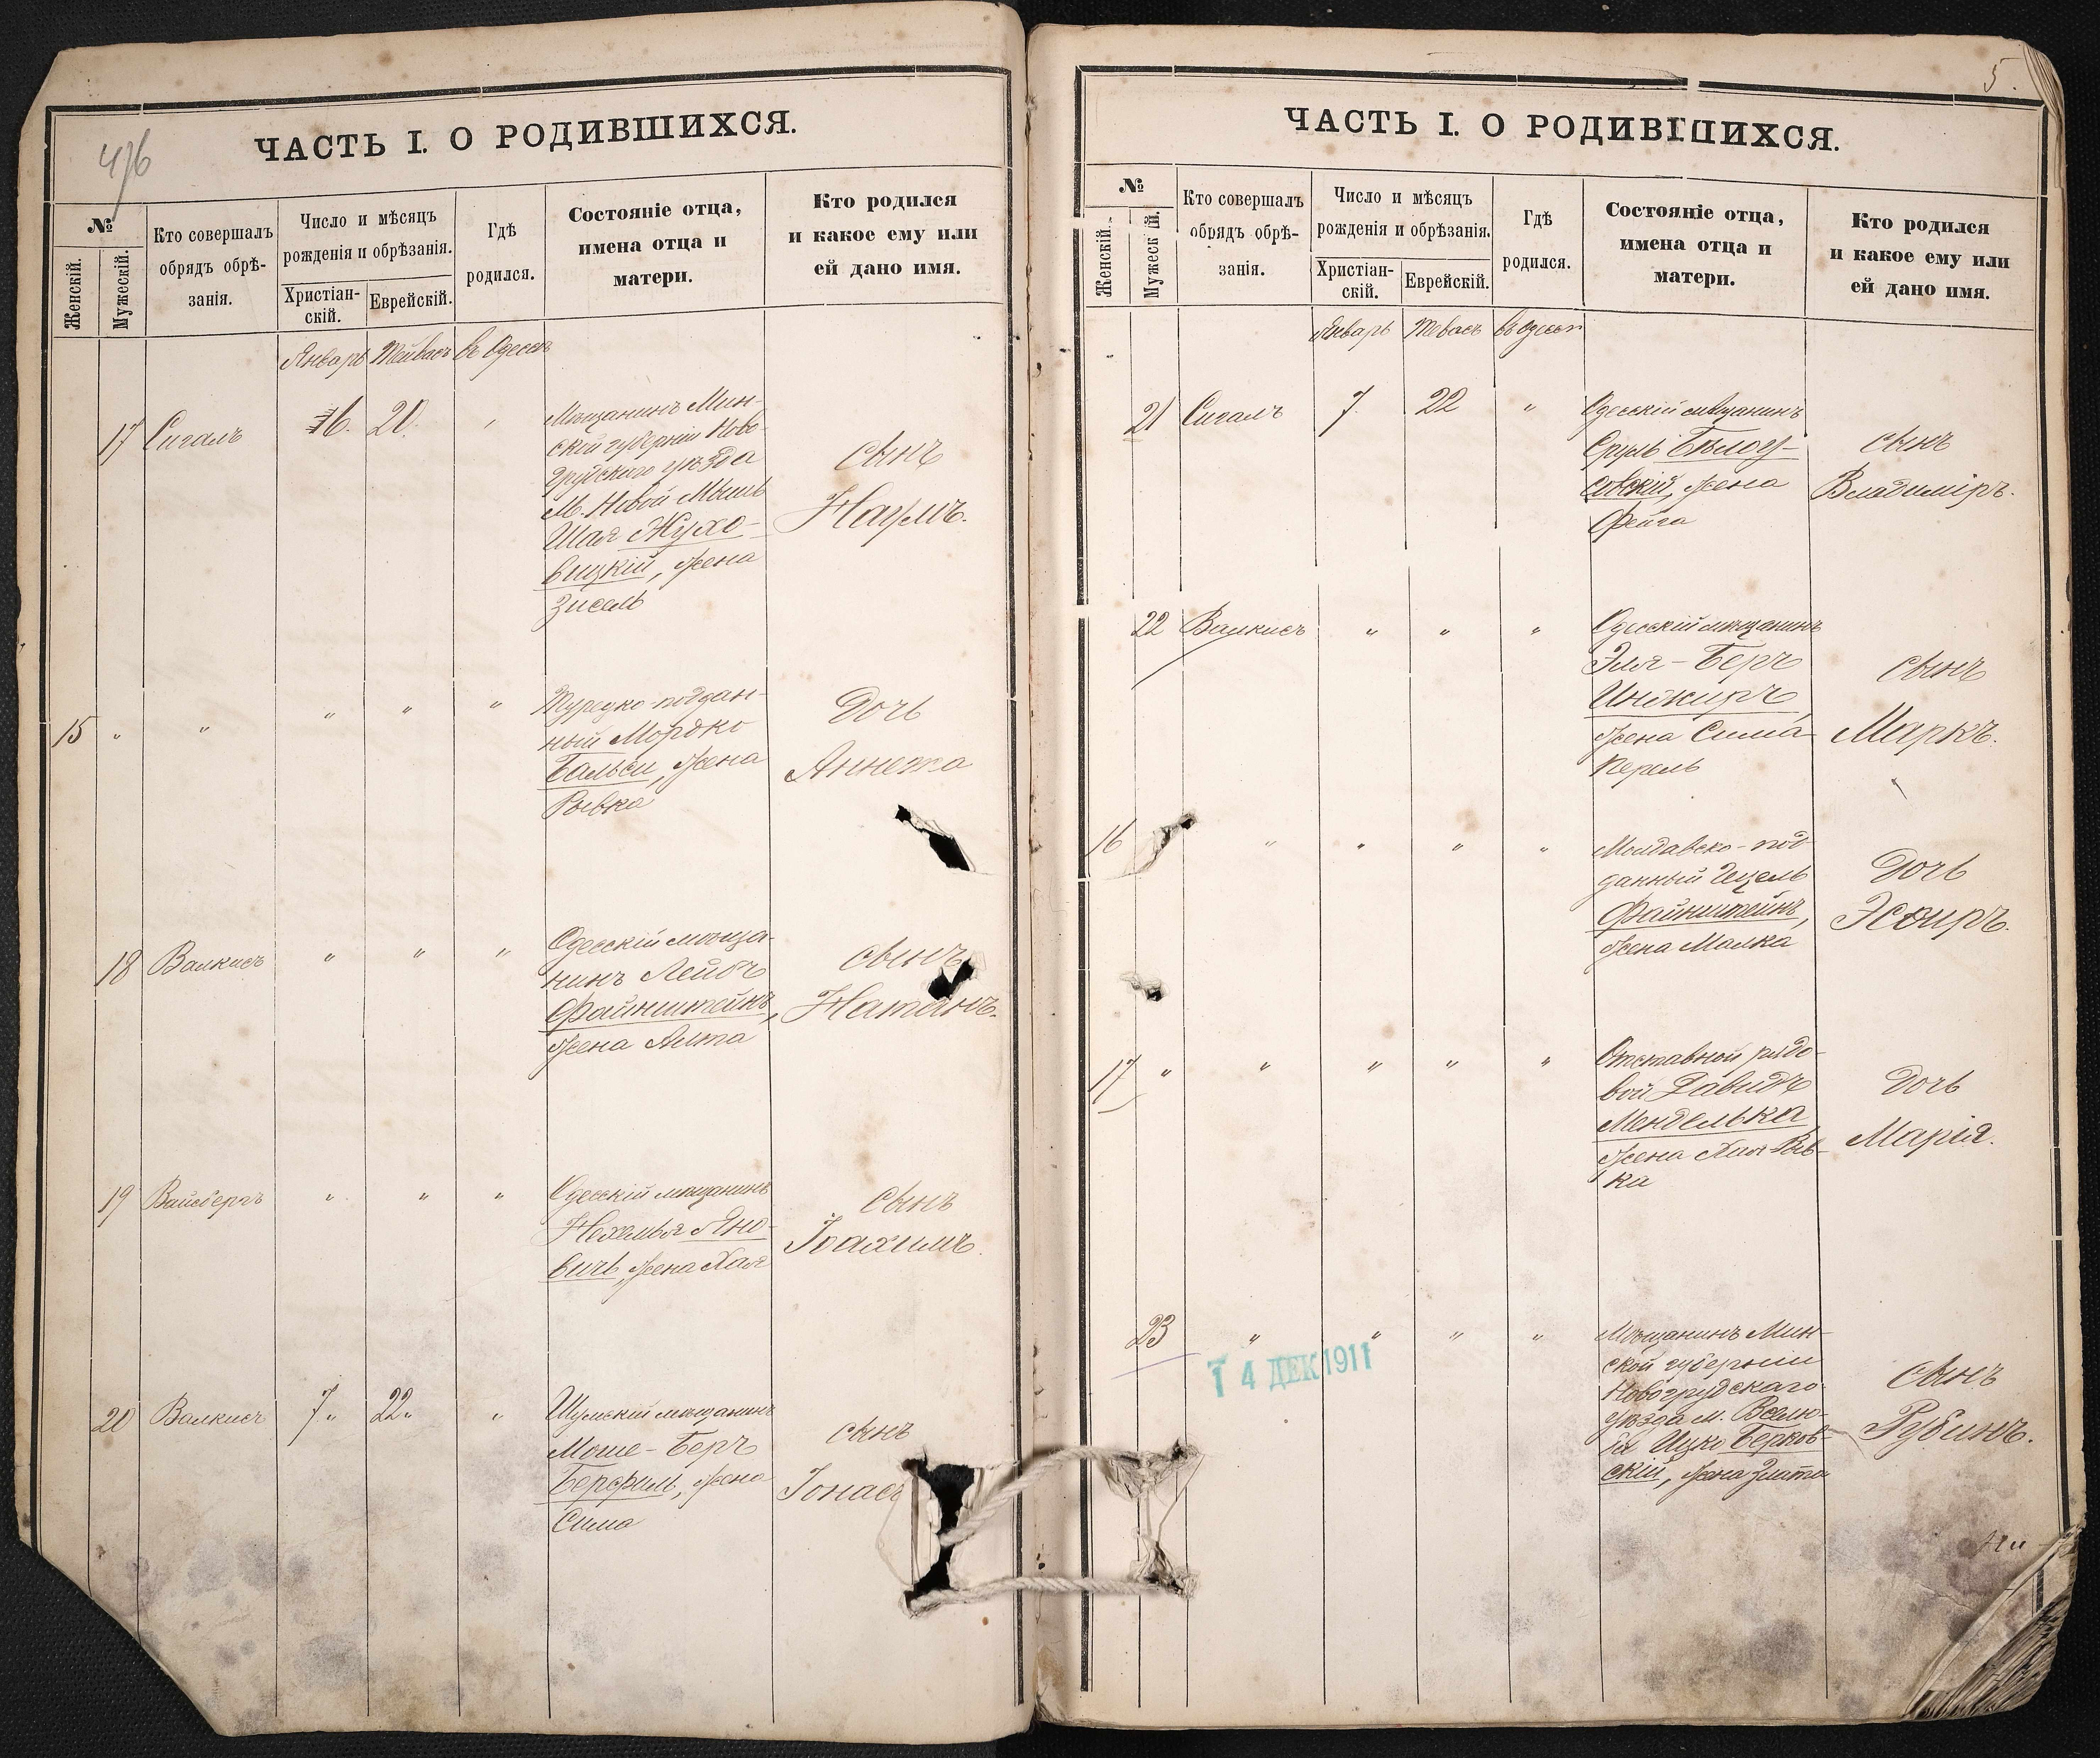 476
ЧАСТЬ I. О РОДИВШИХСЯ.
№
Женскій.
Мужескій.
Кто совершалъ
обрядъ обрѣ-
занія.
Число и мѣсяцъ
рожденія и обрѣзанія.
Христіан-
скій.
Еврейскій.
Гдѣ
родился.
Состояніе отца,
имена отца и
матери.
Кто родился
и какое ему или
ей дано имя.
Январь Тейвасъ въ Одессѣ
17 Сигалъ 6. 20. „
Мѣщанинъ Мин-
ской губерніи Ново-
грудскаго уѣзда
М. Новой-Мышь
Шая Жухо-
вицкій, жена
Зисель
сынъ
Наумъ.
15 „ „ „ „ „
Турецко-поддан-
ный Мордко
Бальси, жена
Рывка
Дочь
Аннета
18 Валкисъ „ „ „
Одесскій мѣща-
нинъ Лейбъ
Файнштейнъ,
жена Алта
сынъ
Натанъ.
19 Вайсбергъ „ „ „
Одесскій мѣщанинъ
Нехемья Яно-
вичъ, жена Хая
сынъ
Іоахимъ.
20 Валкисъ 7„ 22„ „
Шумскій мѣщанинъ
Моше-Беръ
Берфиль, жена
Сима
сынъ
Іонасъ
5.
ЧАСТЬ I. О РОДИВШИХСЯ.
№
Женскій.
Мужескій.
Кто совершалъ
обрядъ обрѣ-
занія.
Число и мѣсяцъ
рожденія и обрѣзанія.
Христіан-
скій.
Еврейскій.
Гдѣ
родился.
Состояніе отца,
имена отца и
матери.
Кто родился
и какое ему или
ей дано имя.
Январь Тевасъ въ Одессѣ
21 Сигалъ 7. 22 „
Одесскій мѣщанинъ
Сруль Бѣлоу-
совскій, жена
Фейга
сынъ
Владиміръ.
22 Валкисъ „ „ „
Одесскій мѣщанинъ
Эля-Беръ
Инжиръ,
жена Сима
Перель
сынъ
Маркъ.
16 „ „ „ „
Молдавско-под
данный Гецель
Файнштейнъ,
жена Малка
Дочь
Эсѳиръ.
17 „ „ „ „ „
Отставной рядо-
вой Давидъ
Менделька
жена Хая Рыв-
ка
Дочь
Марія.
23 „ „ „ „
14 ДЕК 1911
Мѣщанинъ Мин-
ской губерніи
Новогрудскаго
уѣзда м. Вселю-
ба Ицко Берков-
скій, жена Злата
сынъ
Рубинъ.